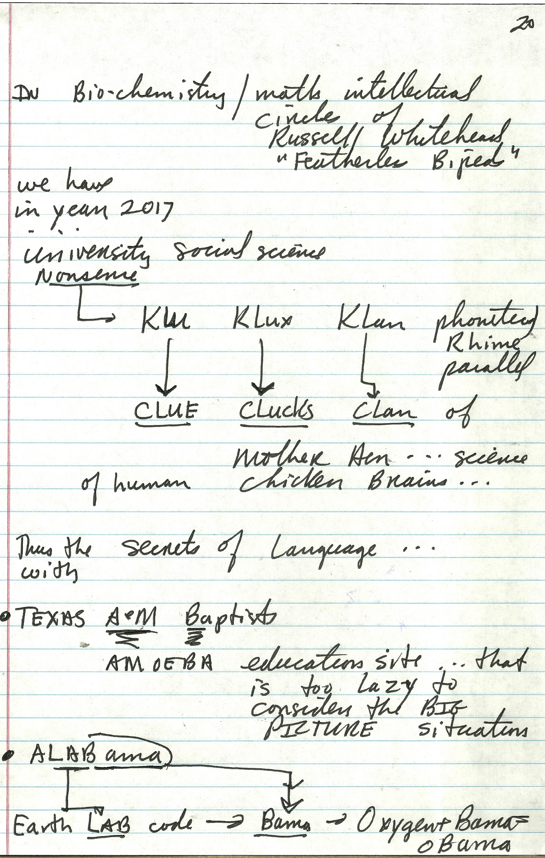 20
IN Bio-chemistry / maths intellectual
circles of
Russell / Whitehead
"Featherles Biped"
we have
in year 2017
University social science
Nonsense
KLU KLux KLan phonetics
Rhime
parallel
CLUE CLucks CLan of
Mother Hen ... science
of human chicken Brains ...
Thus the secrets of Language ...
with
TEXAS A&M Baptists
AMOEBA education site ... that
is too lazy to
consider the BIG
PICTURE situation
ALAB ama
Earth LAB code → Bama → Oxygen + Bama =
oBama